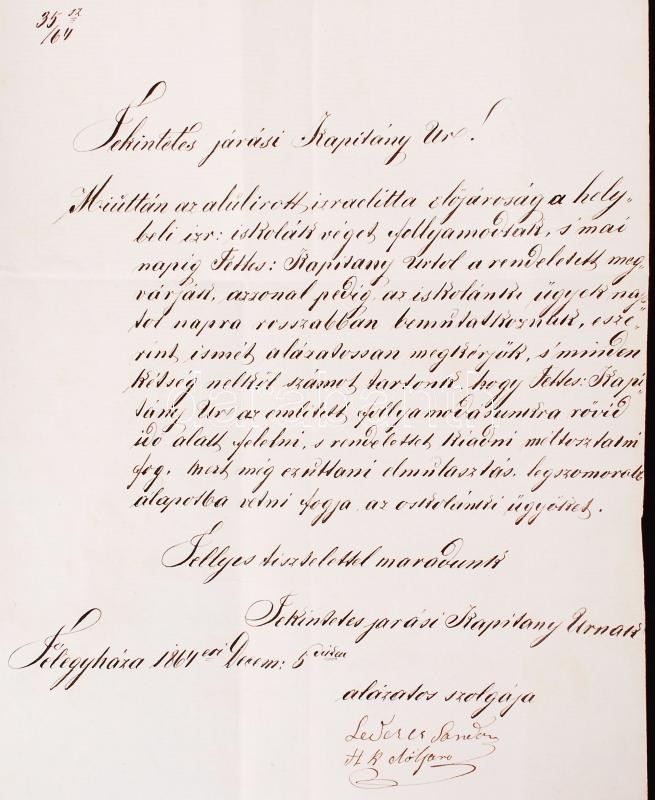 35 sz
/64
Tekintetes járási Kapitány Ur!
Miúttán az alúlirott izraelitta elöjároság a hely-
beli izr: iskolák véget follyamodtak, s' mai
napig Tettes: Kapitany Urtol a rendeletett meg-
várják, azzonal pedig, az iskolánki ügyek nap-
tol napra rosszabbán bemútatkoznak, esze-
rint ismét alázatossan megkérjük, s' minden
kétség nélkül számot tartonk, hogy Tettes: Kapi-
tány Ur az emlitett follyamodásunkra rövid
üdö alatt felelni, s rendelettet kiadni méltoztatni
fog, mert még ezúttani elmúlasztás, legszomorubb
álapotba vetni fogja az oskolánki ügyöket.
Tellyes tisztelettel maradunk
Tekintetes jarási Kapitany Urnak
Félegyháza 1864 esi Decem: 5 dikén
alázatos szolgája
Lederer Sandor
H K elöljaro
darabanth